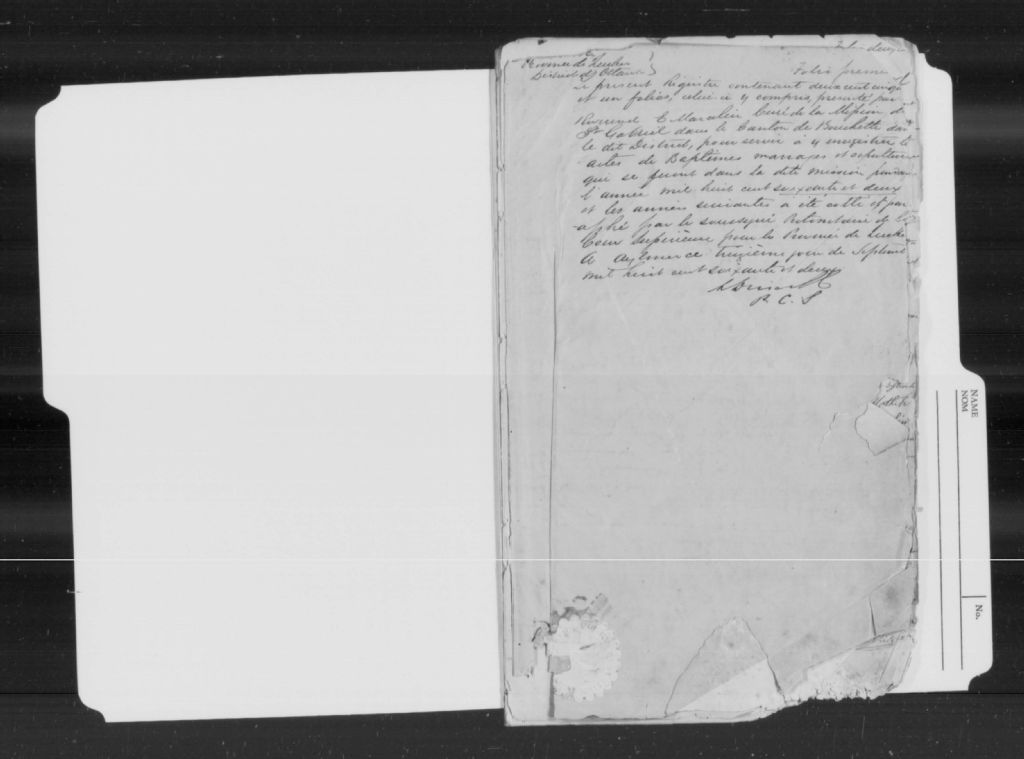 Province de Quebec
District d'Ottawa
Folio premier
Le présent Registre contenant deux cent cinq
et un folios, celui-ci y compris, presenté par
Reverend E Marcelin Curé de la Mission de
St Gabriel dans le Canton de Bouchette dans
le dit District, pour servir à y enregistrer les
actes de Baptêmes mariages et sepultures
qui se feront dans la dite mission pendant
l'année mil huit cent soixante et deux
et les années suivantes a été cotté et par
aphé par le soussigné Protonotaire de la
Cour Supérieure pour la Province de
A Aylmer ce treizième jour de Septembre
mil huit cent soixante et deux
P. C. S
NAME
NOM
No.